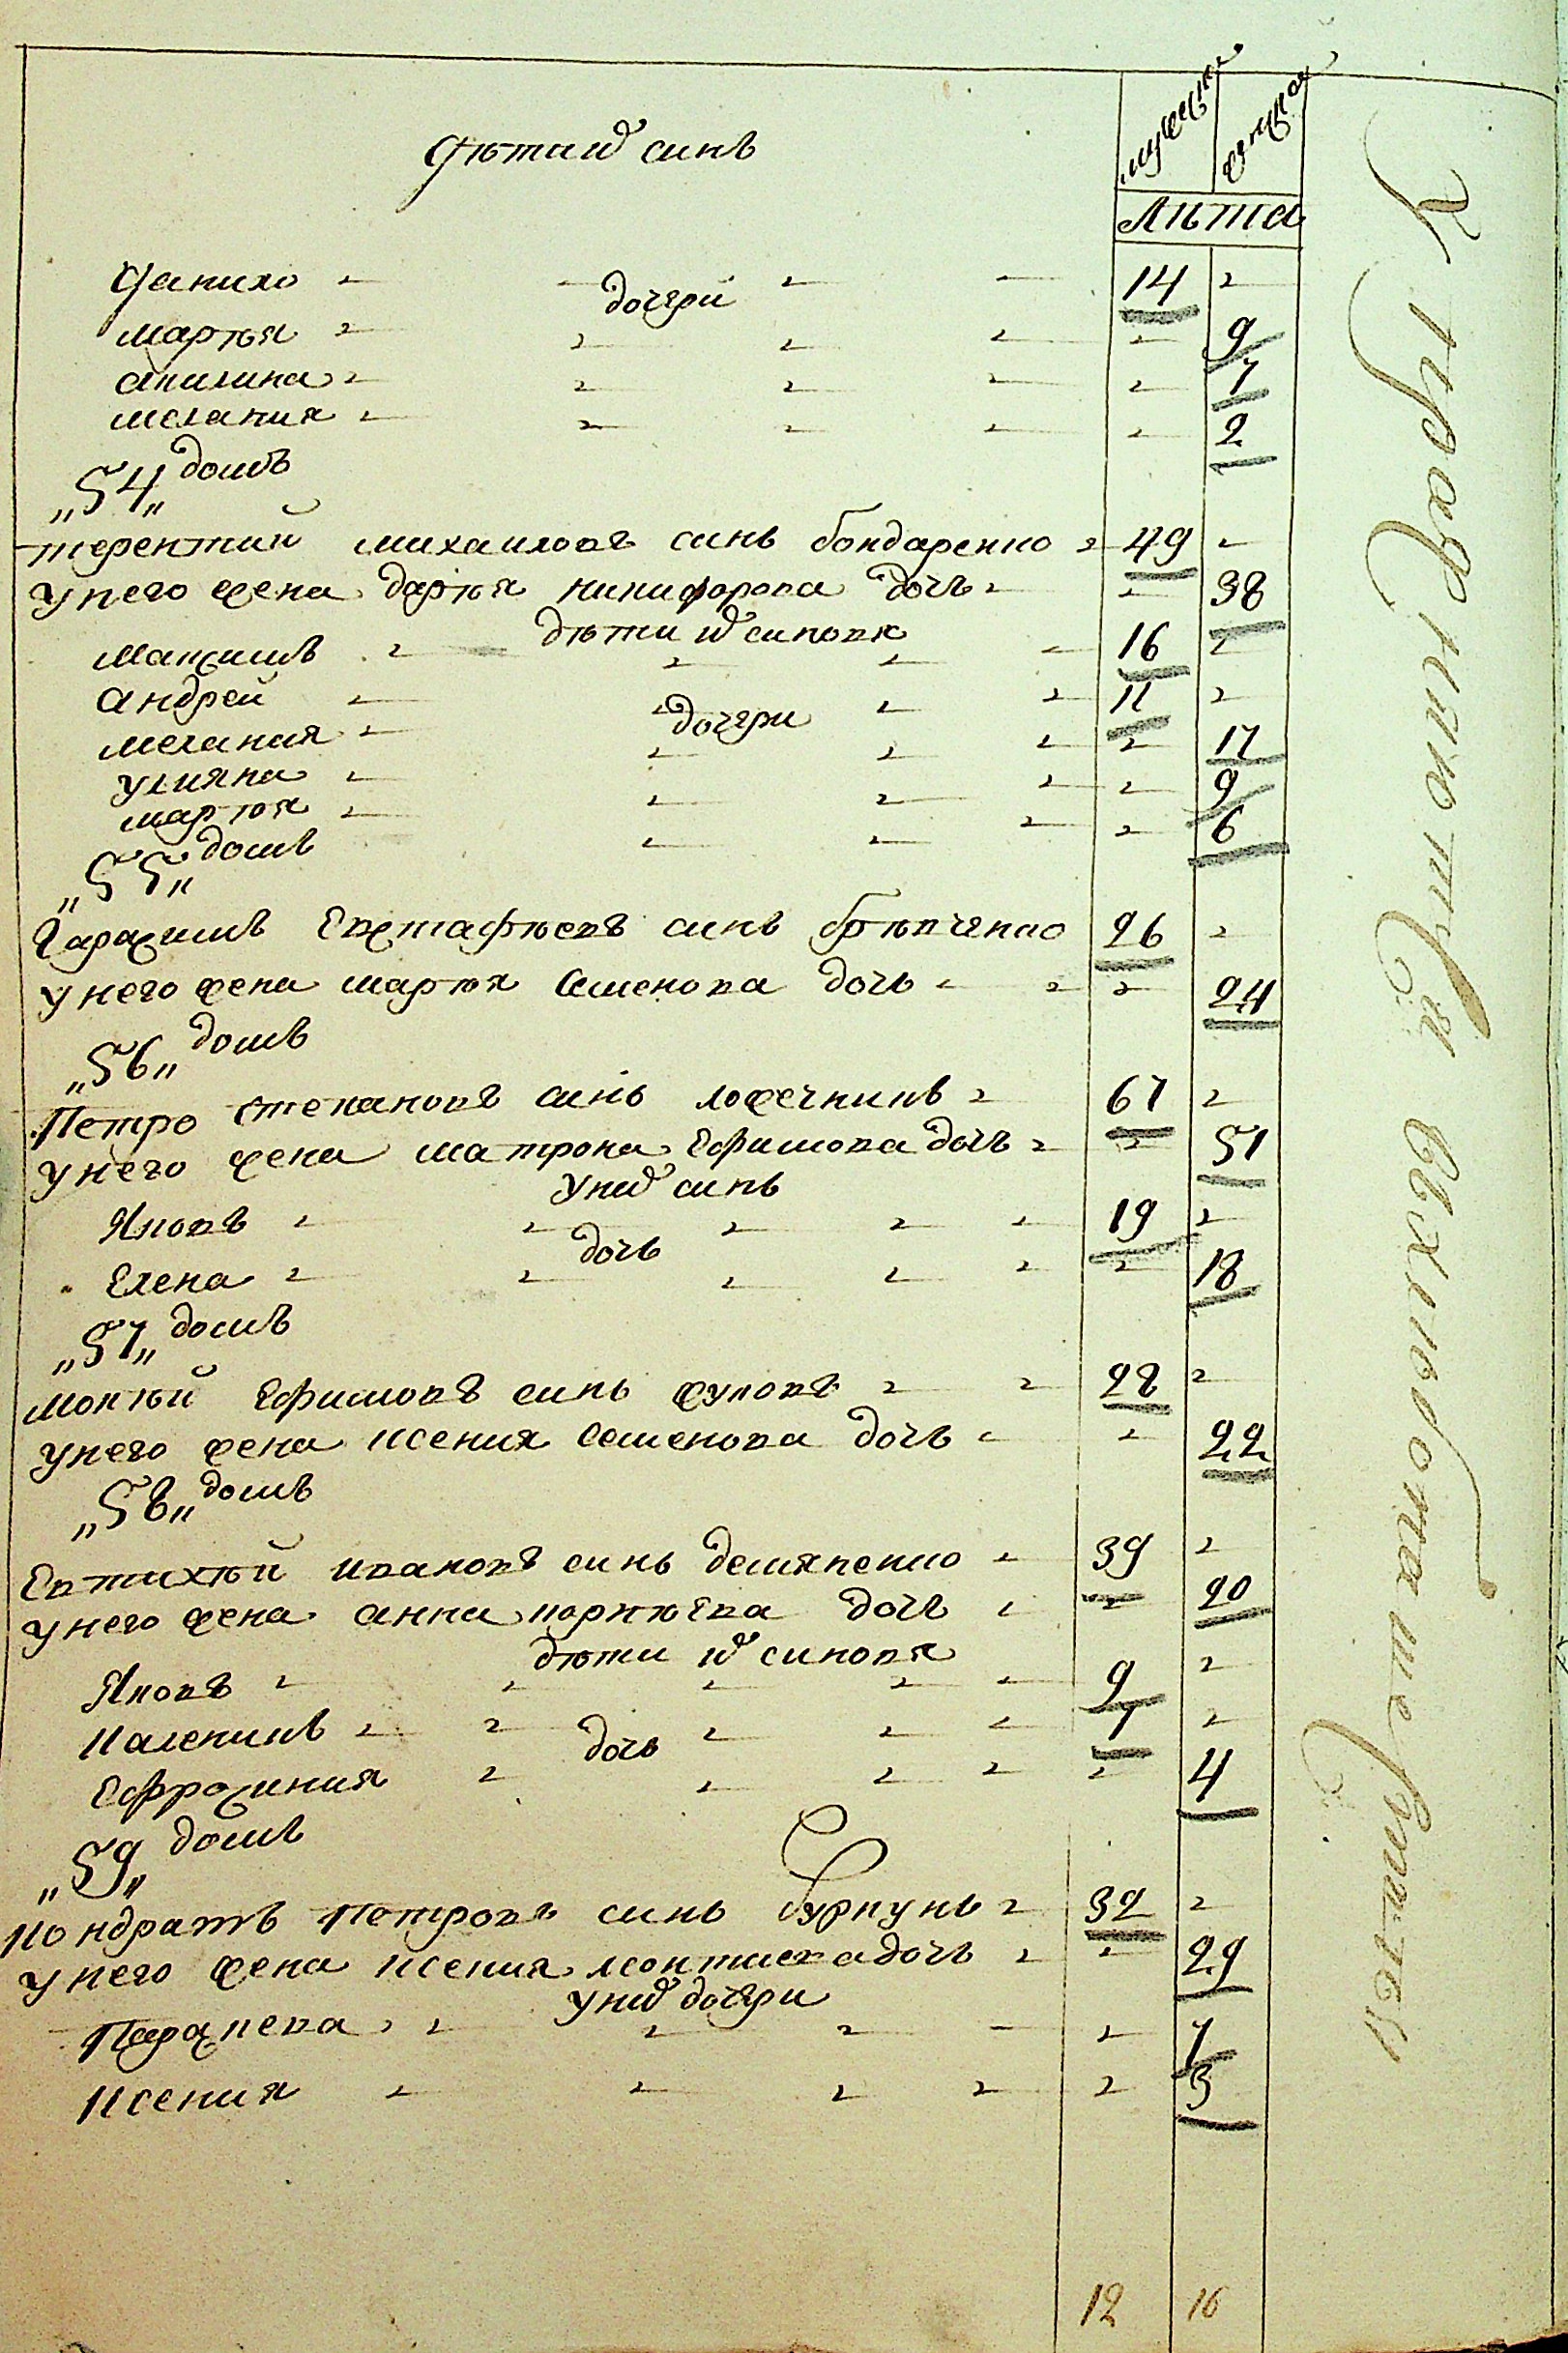 дѣти ихъ синъ
мужеска женска
лѣта
Данило 14
дочери
Марѳія 9
Акилина 7
Меланія 2
„54„ домъ
Терентий Михаиловъ синъ Бондаренко 49
У него жена Дарія Никифорова дочь 38
дѣти ихъ синовя
Максимъ 16
Андрей 11
дочери
Меланія 17
Улияна 9
Марѳія 6
„55„ домъ
Гарасимъ Евстафѣевъ синъ 26
У него жена Марѳія Семенова дочь 24
„56„ домъ
Петро Степановъ синъ Ложечникъ 67
У него жена Матрона Ефимова дочь 51
У них синъ
Яковъ 19
дочь
Елена 18
„57„ домъ
Мокѣй Ефимовъ синъ Жуковъ 28
У него жена Ксения Семенова дочь 22
„58„ домъ
Евтихѣй Ивановъ синъ Демяненко 39
У него жена Анна Корнѣева дочь 20
дѣти ихъ синовя
Яковъ 9
Каленикъ 7
дочь
Ефросиния 4
„59„ домъ
Кондратъ Петровъ синъ Буркунъ 32
У него жена Ксения дочь 29
У них дочери
Параскева 7
Ксения 3
12 16